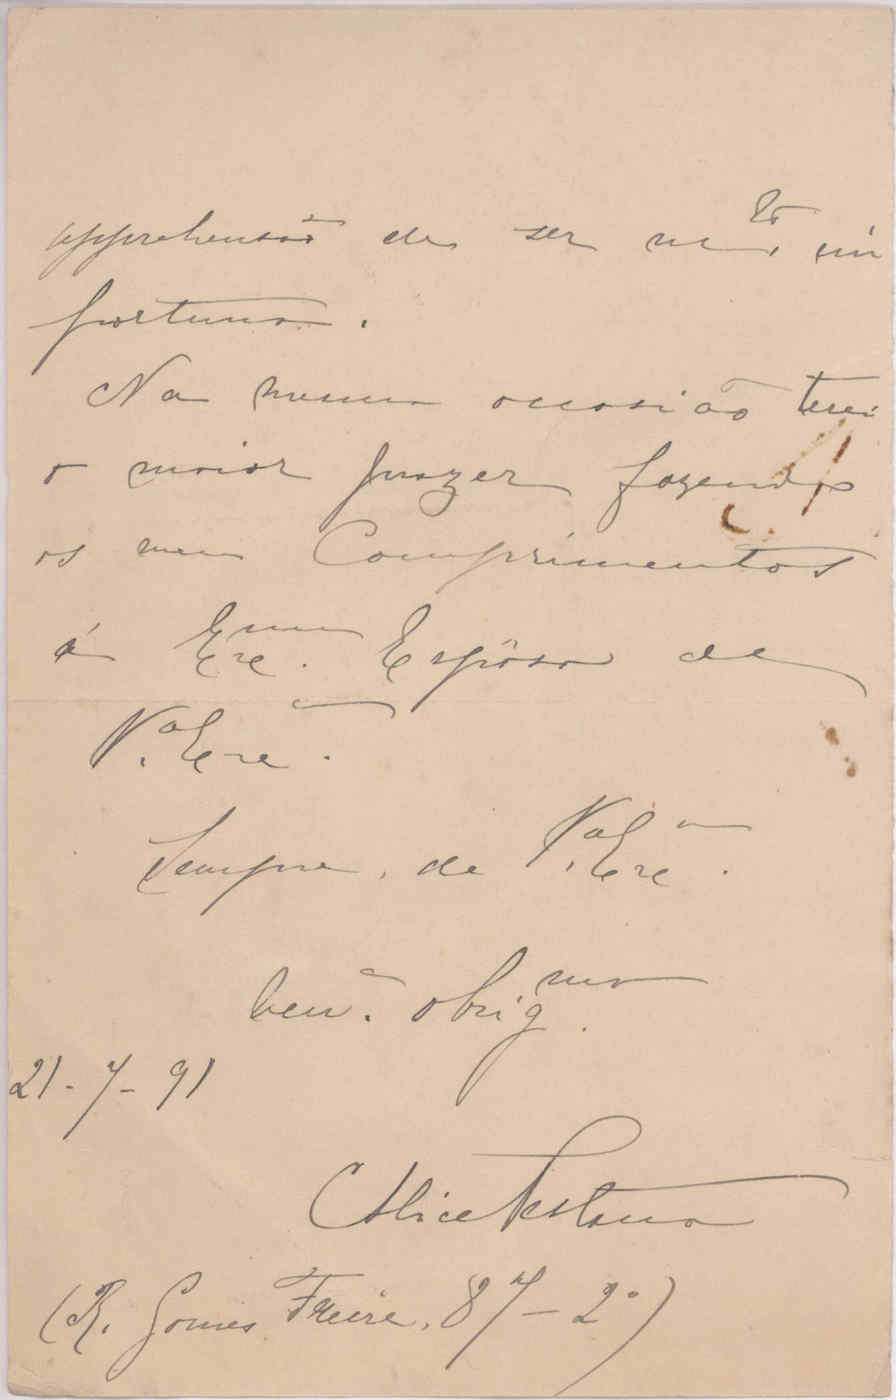 apprehensão de ser m.to im
portuna.
Na mesma occasião terei
o maior prazer fazendo
os meus Comprimentos
á Exma. Espôsa de
V. Exa.
Sempre, de V. Exa.
ven.a obrigma.
21-7-91
Alice Pestana
(R. Gomes Freire, 87-2º)